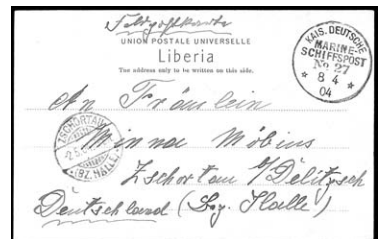 Feldpostkarte
UNION POSTALE UNIVERSELLE
Liberia
The address only to be written on this side.
KAIS. DEUTSCHE
MARINE-
SCHIFFSPOST
No 27
* 8 4 *
04
An Fräulein
Minna Möbius
ZSCHORTAU
(BZ. HALLE)
Zschortau b/Delitzsch
Deutschland (Bez. Halle)